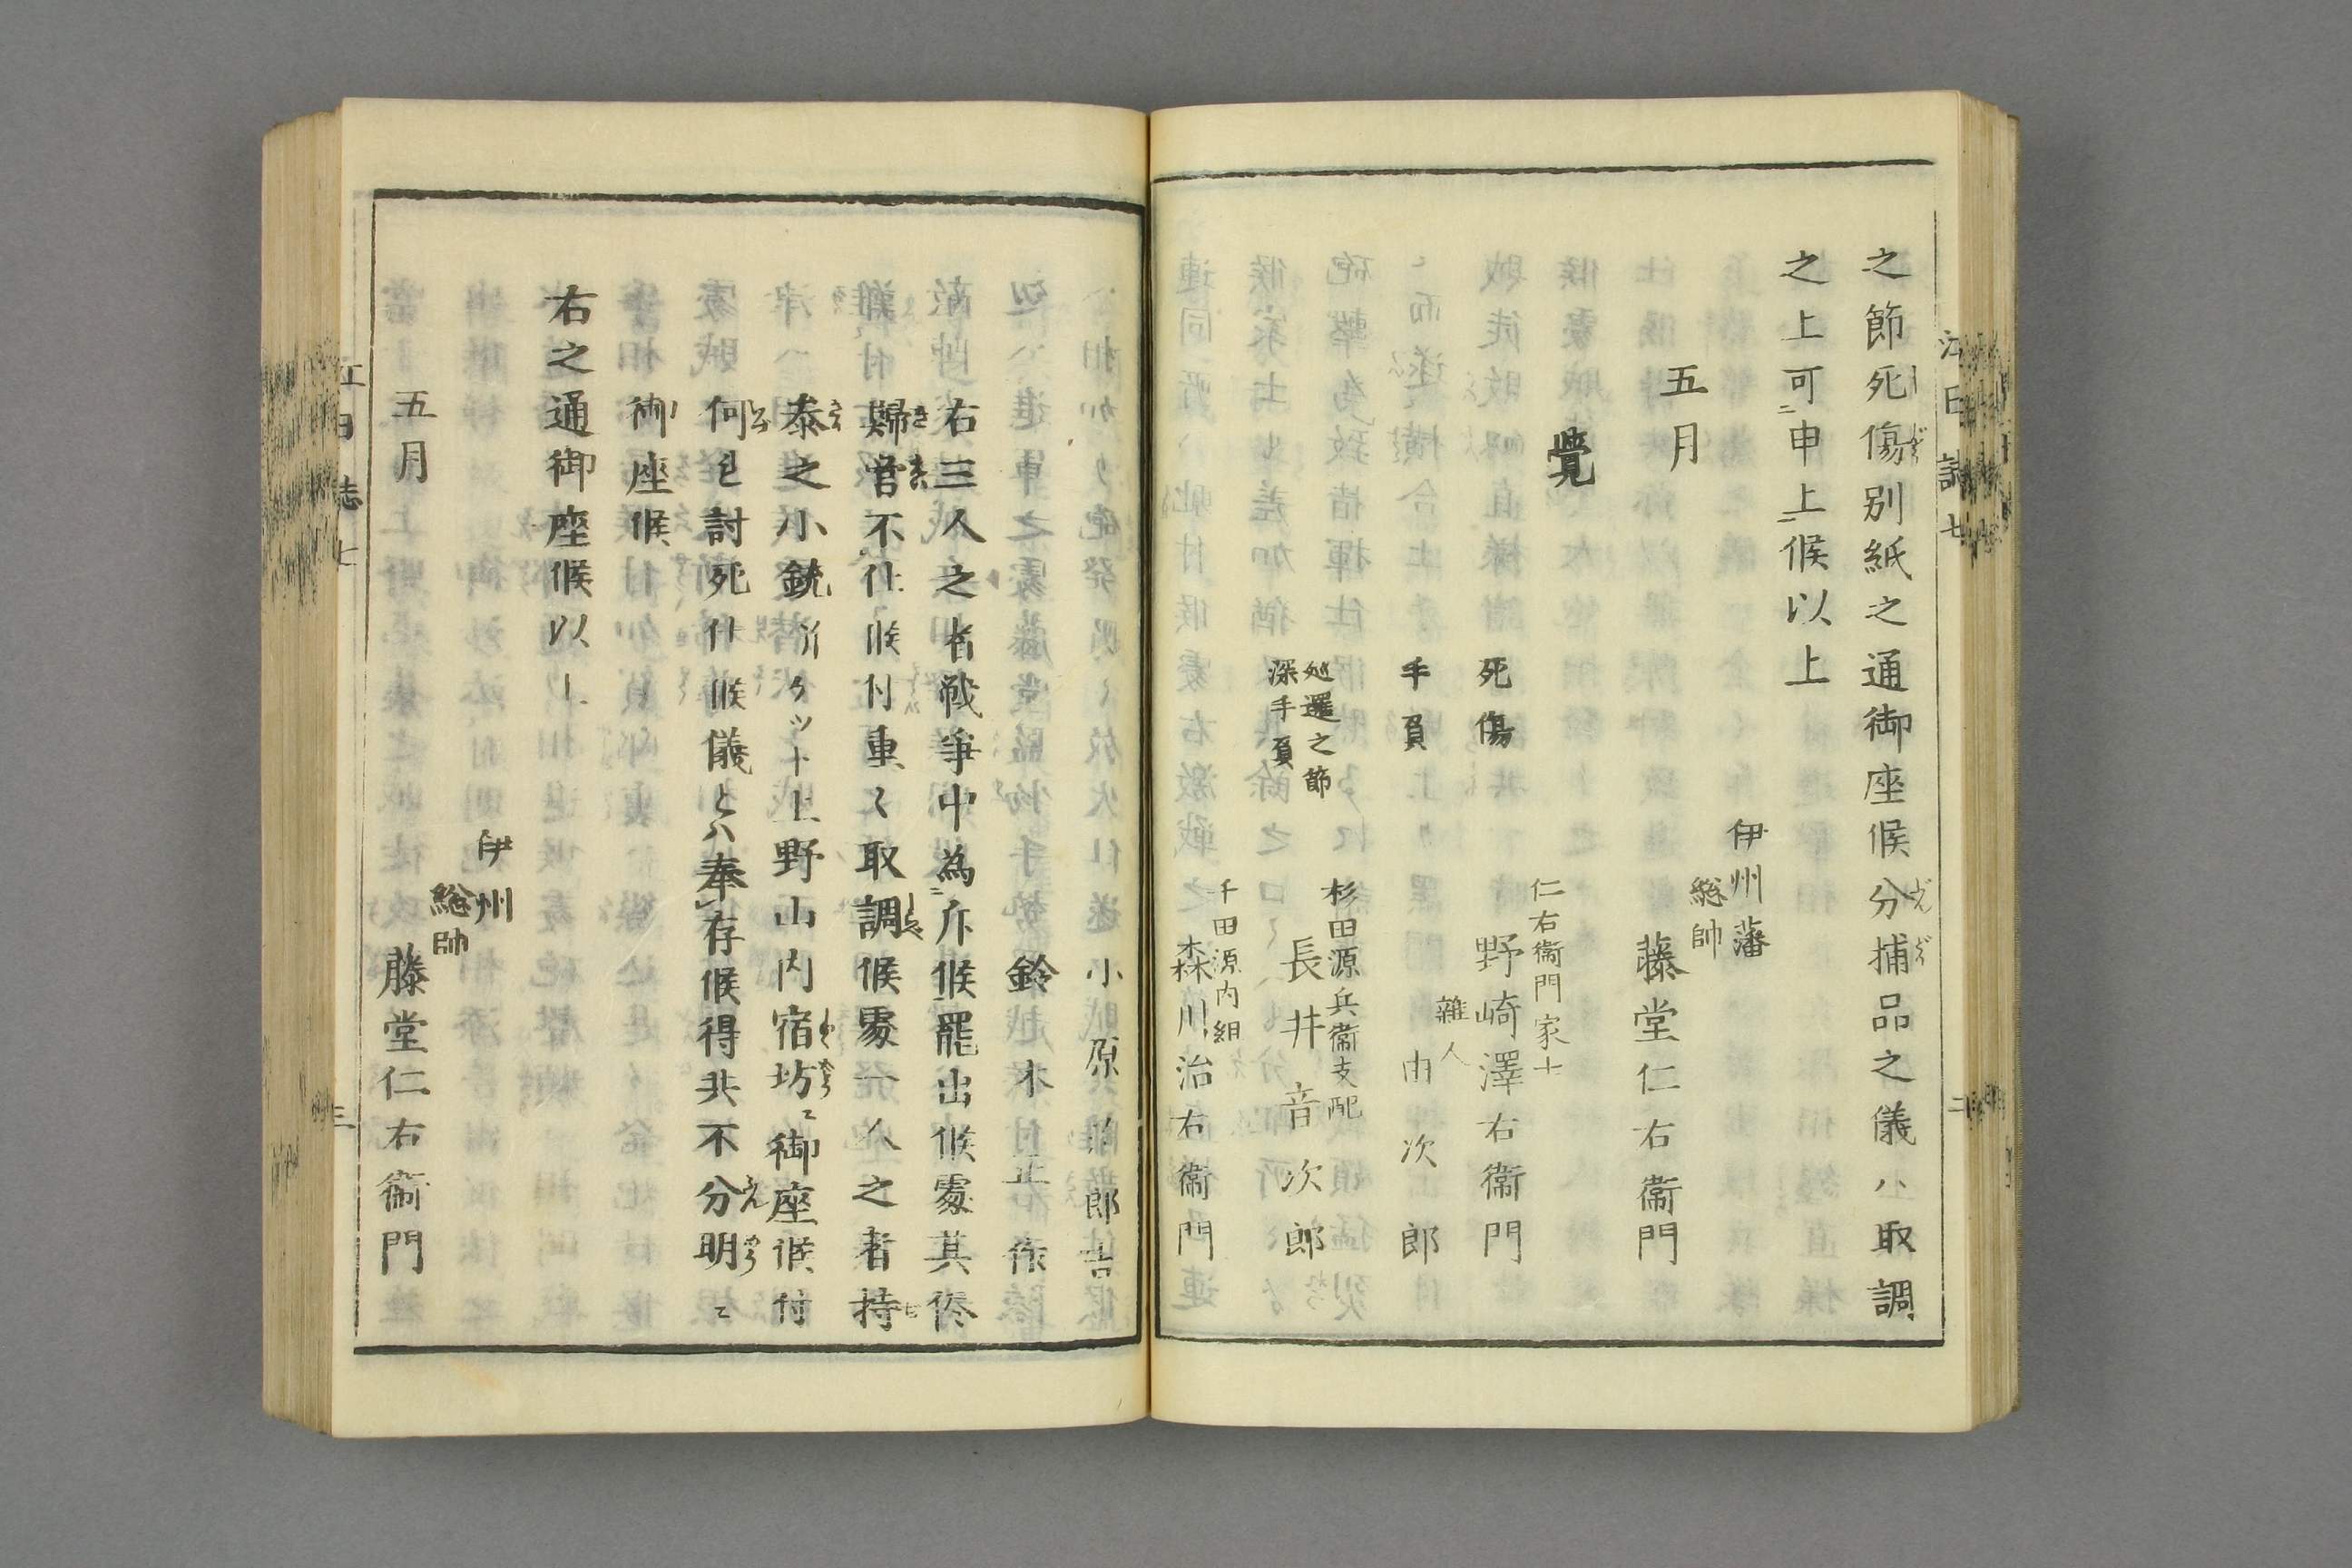 之節死傷別紙之通御座候分捕品之儀ハ取調
之上可申上候以上
五月
伊州藩
総帥
藤堂仁右衞門
覺
仁右衞門家士
死傷 野崎澤右衞門
雜人
手負 由次郎
杉田源兵衞支配
之節
深手負 長井音次郎
千田源内組
森川治右衞門
小原 郎吉
鈴木正作
右三人之者戦爭中為斥候罷出候處其侭
歸営不仕候付重々取調候處一人之者持
泰之小銃 上野山内宿坊ニ御座候付
何レ討死仕候儀とハ奉存候得共不分明ニ
御座候
右之通御座候以上
五月
伊州
総帥
藤堂仁右衞門
江日誌七
二
江日誌七
三